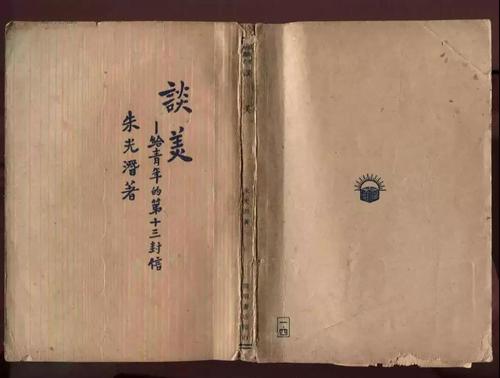 談美
—給青年的第十三封信
朱光潛著
談 美